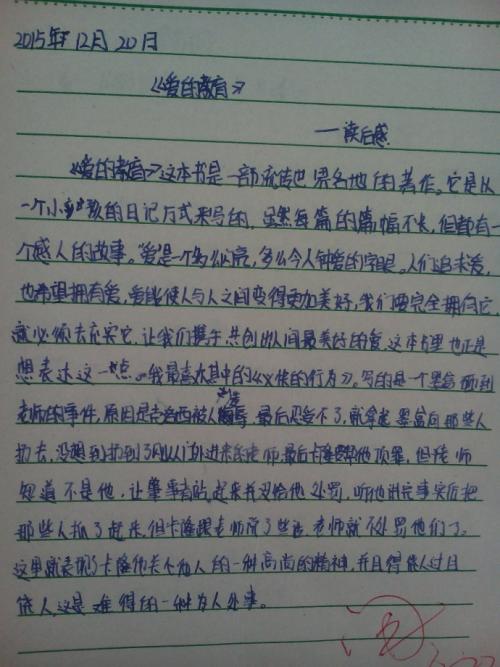 2015年12月20日
《爱的教育》
——读后感
《爱的教育》这本书是一部流传世界各地的著作。它是以
一个小学生的日记方式来写的,虽然每篇的篇幅不长,但都有一
个感人的故事。"爱"是一个多么漂亮,多么令人钟爱的字眼。人们追求爱,
也希望拥有爱,爱能使人与人之间变得更加美好,我们要完全拥有它
就必须去充实它,让我们携手,共创出人间最美好的爱,这本书里也正是
想表达这一点。我最喜欢其中的《义侠的行为》。写的是一个墨盒砸到
老师的事件,原因是克洛西被人侮辱,最后忍受不了,就拿起墨盒向那些人
扔去,没想到扔到了刚从门外进来的老师,最后卡隆帮他顶罪,但老师
知道不是他,让肇事者站起来并没给他处罚,听他讲完事实后把
那些人抓了起来,但卡隆跟老师讲了些话,老师就不处罚他们了。
这里就表现了卡隆伟大不如人的一种高尚的精神,并且得饶人处且
饶人,这是难得的一种为人处事。